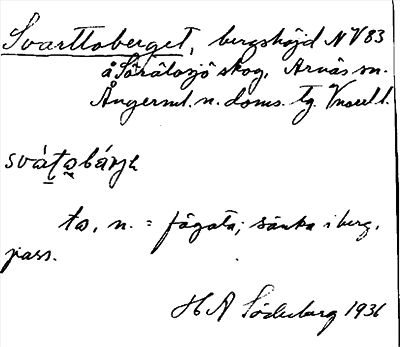 Svarttoberget, bergshöjd NV 83
å Sörålosjö skog, Arnäs sn.
Ångerml. n. doms. tg.
svátobárjh
to, n. = fågata; sänka i berg,
pass.
H A Söderberg 1936